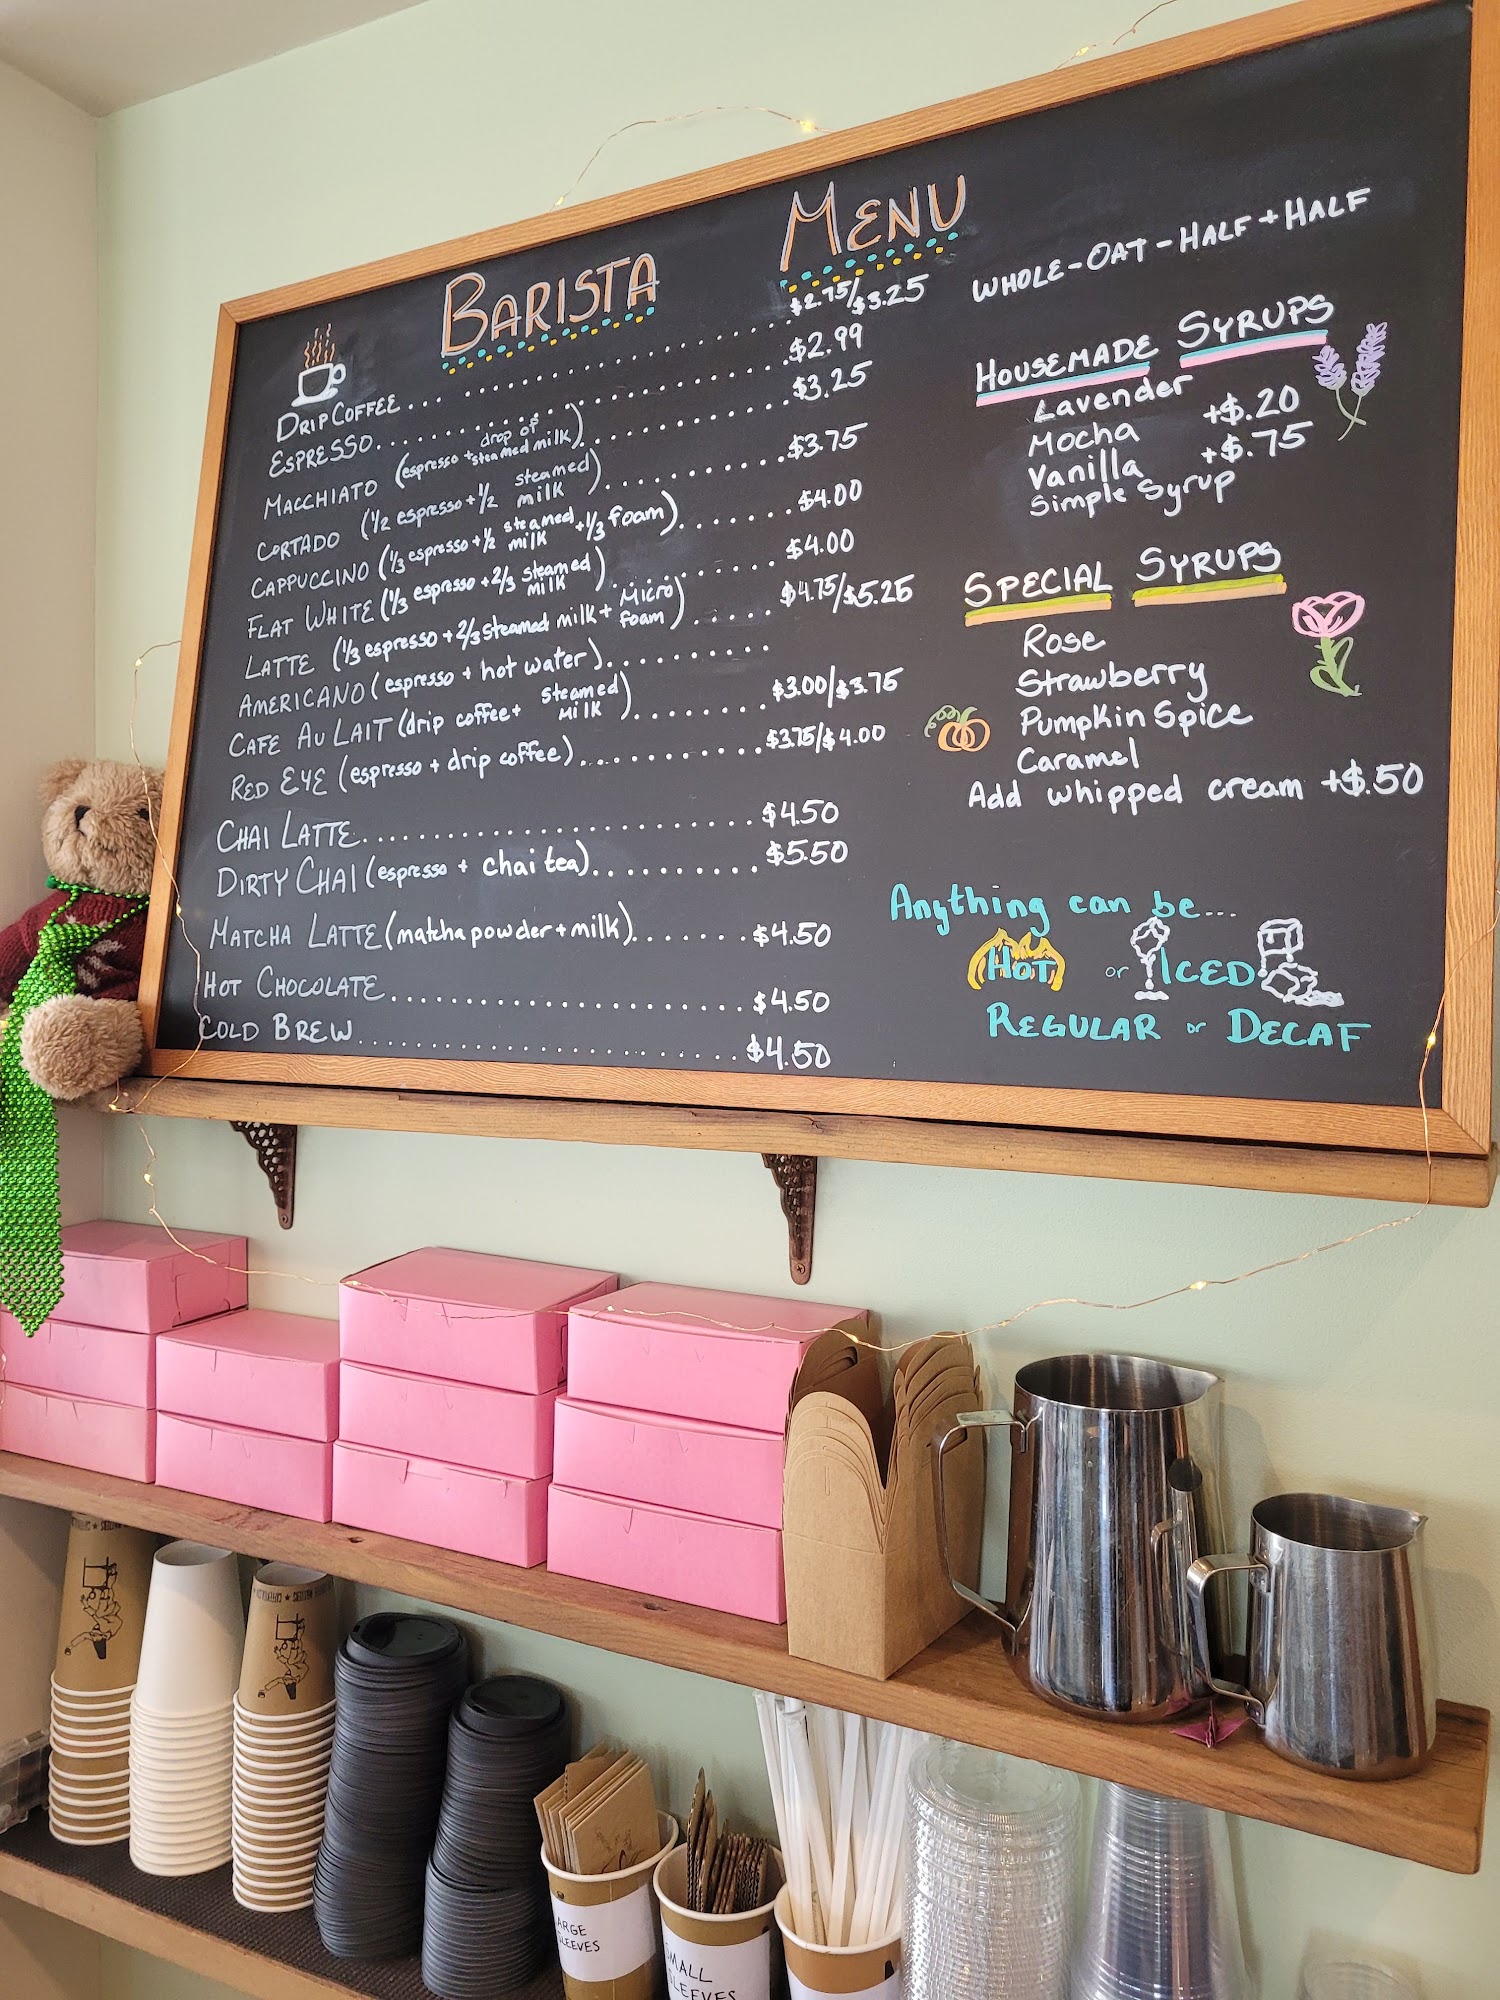 BARISTA MENU
DRIP COFFEE... $2.75/$3.25
ESPRESSO... $2.99
MACCHIATO (espresso + drop of steamed milk)... $3.25
CORTADO (1/2 espresso + 1/2 steamed milk)... $3.75
CAPPUCCINO (1/3 espresso + 1/2 steamed milk + 1/3 foam)... $4.00
FLAT WHITE (1/3 espresso + 2/3 steamed milk)... $4.00
LATTE (1/3 espresso + 2/3 steamed milk + Micro foam)... $4.75/$5.25
AMERICANO (espresso + hot water)...
CAFE AU LAIT (drip coffee + steamed milk)... $3.00/$3.75
RED EYE (espresso + drip coffee)... $3.75/$4.00
CHAI LATTE... $4.50
DIRTY CHAI (espresso + chai tea)... $5.50
MATCHA LATTE (matcha powder + milk)... $4.50
HOT CHOCOLATE... $4.50
COLD BREW... $4.50
WHOLE-OAT-HALF+HALF
HOUSEMADE SYRUPS
Lavender
Mocha +$.20
Vanilla +$.75
Simple Syrup
SPECIAL SYRUPS
Rose
Strawberry
Pumpkin Spice
Caramel
Add whipped cream +$.50
Anything can be...
HOT or ICED
REGULAR or DECAF
ARGE
SLEEVES
SMALL
SLEEVES